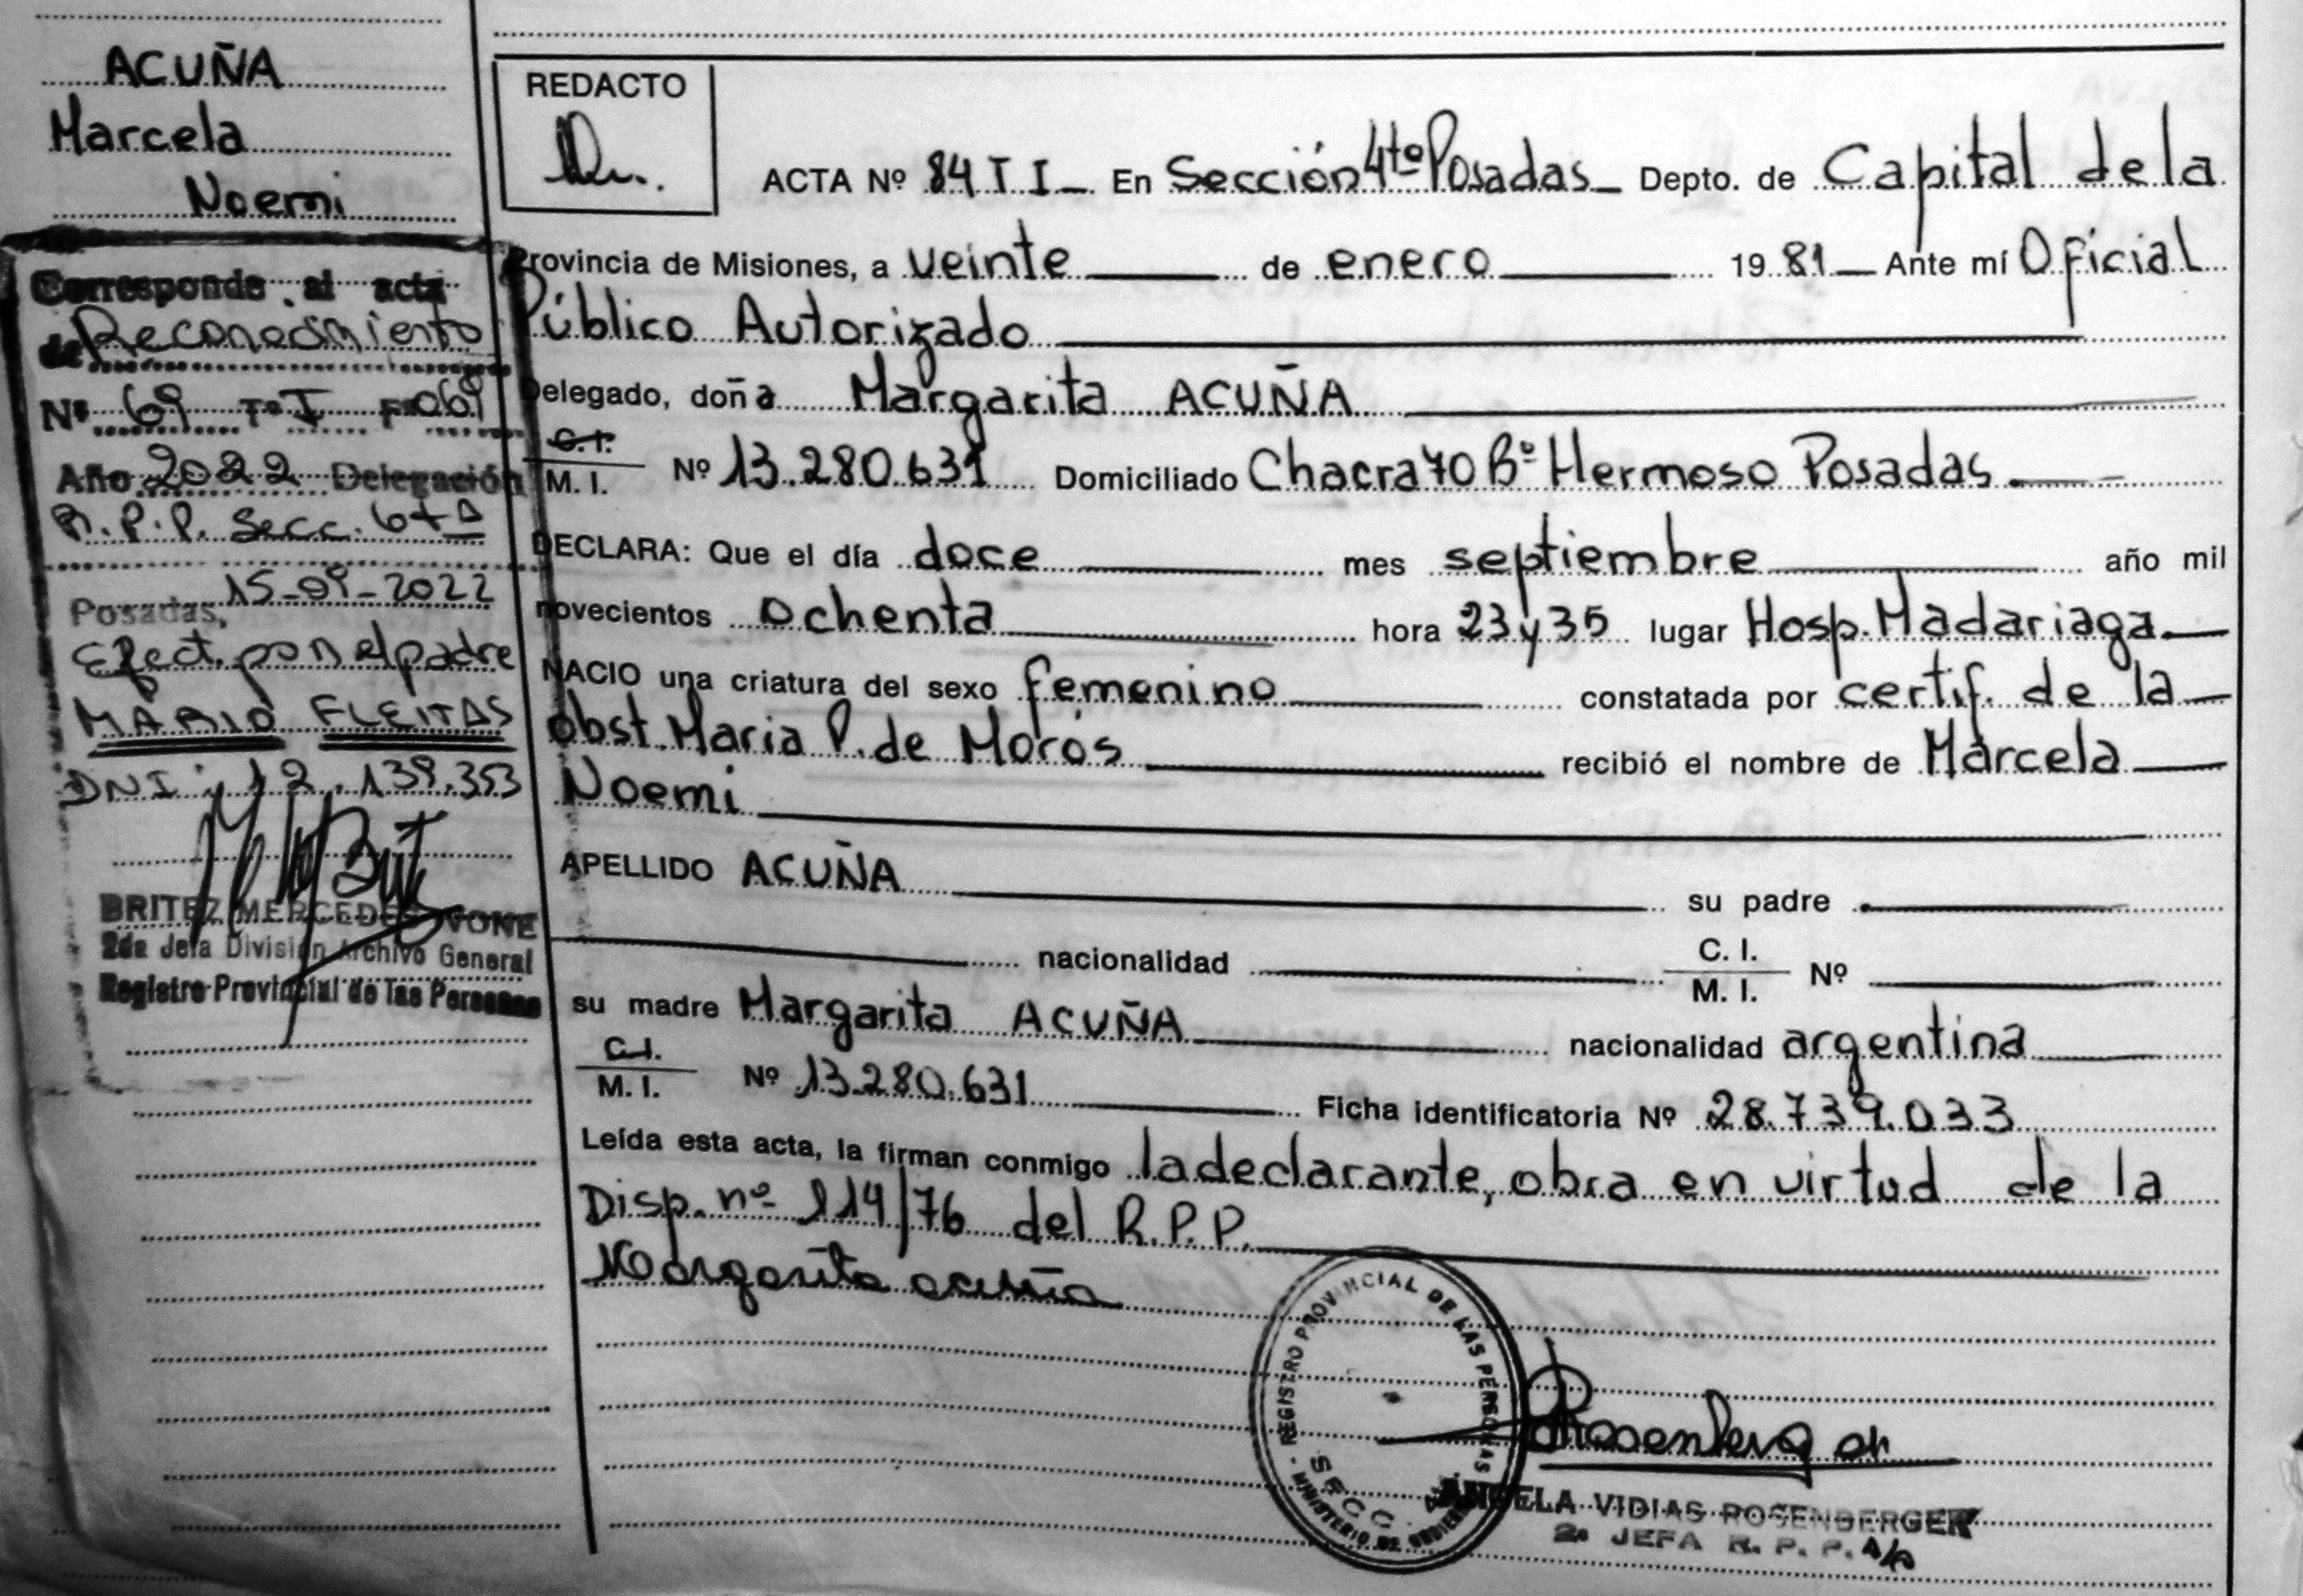 ACUÑA
Marcela
Noemi
Corresponde al acta
de Reconocimiento
Nº 69 Tº I Fº 069
Año 2022 Delegación
R.P.P. Secc. 6ta
Posadas, 15-09-2022
Efect. por el padre
MARIO FLEITAS
DNI: 12.139.353
BRITEZ MERCEDES IVONE
2da Jefa División Archivo General
Registro Provincial de las Personas
REDACTO
ACTA Nº 84 T I En Sección 4ta Posadas Depto. de Capital de la
Provincia de Misiones, a veinte de enero 1981 Ante mí Oficial
Público Autorizado
Delegado, doña Margarita ACUÑA
C.I.
M.I. Nº 13.280.631 Domiciliado Chacra 70 Bº Hermoso Posadas
DECLARA: Que el día doce mes septiembre año mil
novecientos ochenta hora 23 y 35 lugar Hosp. Madariaga
NACIO una criatura del sexo femenino constatada por certif. de la
obst. Maria P. de Morós recibió el nombre de Marcela
Noemi
APELLIDO ACUÑA su padre
nacionalidad C. I.
M. I. Nº
su madre Margarita ACUÑA nacionalidad argentina
C.I.
M. I. Nº 13.280.631 Ficha identificatoria Nº 28.739.033
Leída esta acta, la firman conmigo la declarante, obra en virtud de la
Disp. nº 114/76 del R.P.P.
Margarita acuña
REGISTRO PROVINCIAL DE LAS PERSONAS
MINISTERIO DE GOBIERNO
SECC.
ANGELA VIDIAS ROSENBERGER
2a JEFA R. P. P.